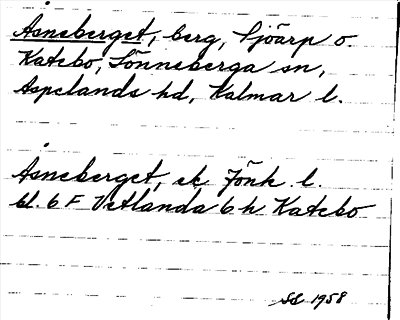 Åsneberget, berg, Sjöarp o.
Katebo, Lönneberga sn,
Aspelands hd, Kalmar l.
Åsneberget, ek Jönk. l.
bl. 6 F Vetlanda 6 h Katebo
SS 1958